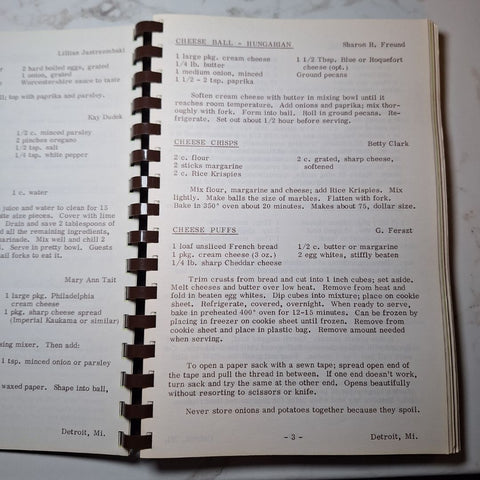 Lillian Jastrzembski
2 hard boiled eggs, grated
1 onion, grated
Worcestershire sauce to taste
ll; top with paprika and parsley.
Kay Dudek
1/2 c. minced parsley
2 pinches oregano
1/2 tsp. salt
1/4 tsp. white pepper
1 c. water
juice and water to clean for 15
ite size pieces. Cover with lime
Drain and save 2 tablespoons of
d all the remaining ingredients,
arinade. Mix well and chill 2
Serve in pretty bowl. Guests
ail forks to eat it.
Mary Ann Tait
1 large pkg. Philadelphia
cream cheese
1 pkg. sharp cheese spread
(Imperial Kaukama or similar)
sing mixer. Then add:
1 tsp. minced onion or parsley
waxed paper. Shape into ball,
Detroit, Mi.
CHEESE BALL - HUNGARIAN Sharon R. Freund
1 large pkg. cream cheese 1 1/2 Tbsp. Blue or Roquefort
1/4 lb. butter cheese (opt.)
1 medium onion, minced Ground pecans
1 1/2 - 2 tsp. paprika
Soften cream cheese with butter in mixing bowl until it
reaches room temperature. Add onions and paprika; mix thor-
oughly with fork. Form into ball. Roll in ground pecans. Re-
frigerate. Set out about 1/2 hour before serving.
CHEESE CRISPS Betty Clark
2 c. flour 2 c. grated, sharp cheese,
2 sticks margarine softened
2 c. Rice Krispies
Mix flour, margarine and cheese; add Rice Krispies. Mix
lightly. Make balls the size of marbles. Flatten with fork.
Bake in 350° oven about 20 minutes. Makes about 75, dollar size.
CHEESE PUFFS G. Ferszt
1 loaf unsliced French bread 1/2 c. butter or margarine
1 pkg. cream cheese (3 oz.) 2 egg whites, stiffly beaten
1/4 lb. sharp Cheddar cheese
Trim crusts from bread and cut into 1 inch cubes; set aside.
Melt cheeses and butter over low heat. Remove from heat and
fold in beaten egg whites. Dip cubes into mixture; place on cookie
sheet. Refrigerate, covered, overnight. When ready to serve,
bake in preheated 400° oven for 12-15 minutes. Can be frozen by
placing in freezer on cookie sheet until frozen. Remove from
cookie sheet and place in plastic bag. Remove amount needed
when serving.
To open a paper sack with a sewn tape; spread open end of
the tape and pull the thread in between. If one end doesn't work,
turn sack and try the same at the other end. Opens beautifully
without resorting to scissors or knife.
Never store onions and potatoes together because they spoil.
- 3 - Detroit, Mi.